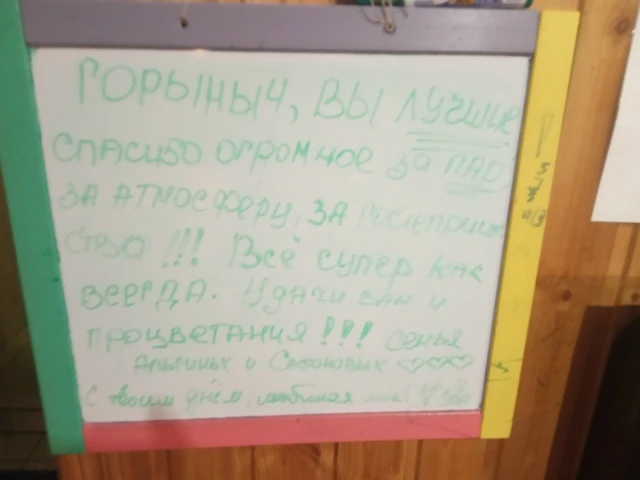 ГОРЫНЫЧ, ВЫ ЛУЧШИЕ
СПАСИБО ОГРОМНОЕ ЗА ПАР
ЗА АТМОСФЕРУ, ЗА ГОСТЕПРИИМ
СТВО !!! ВСЁ СУПЕР КАК
ВСЕГДА. УДАЧИ ВАМ И
ПРОЦВЕТАНИЯ !!! СЕМЬЯ
и
С твоим днём, любимая